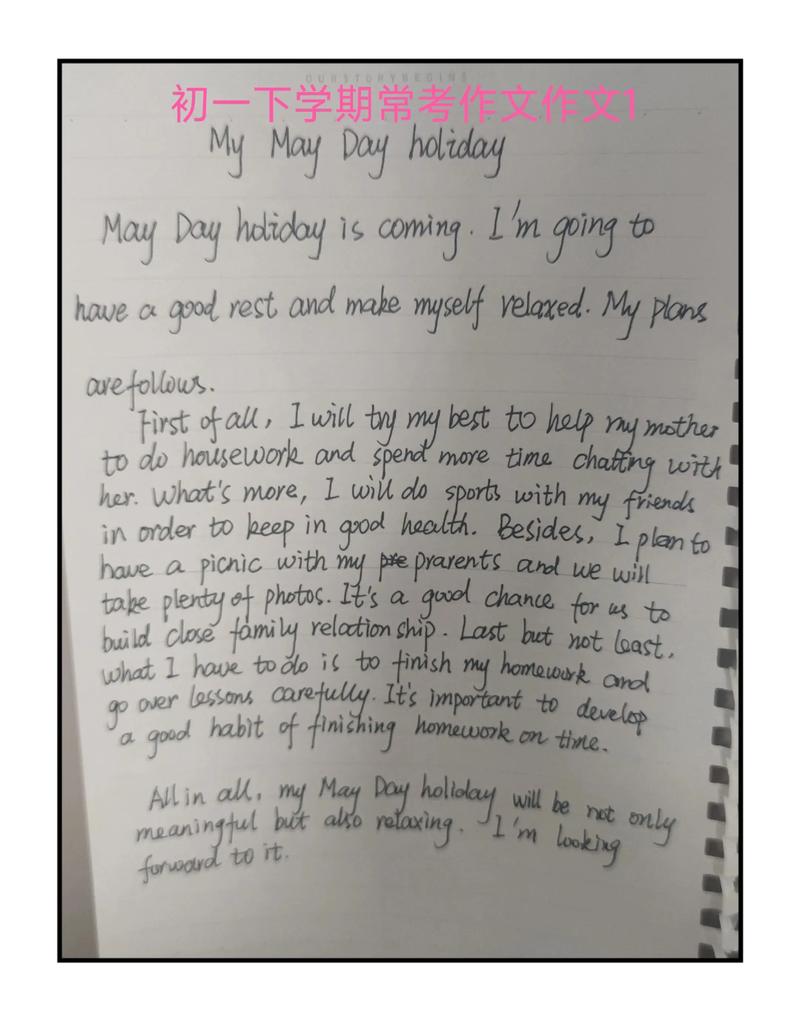 OURSTORYBEGINS
初一下学期常考作文作文1
My May Day holiday
May Day holiday is coming. I'm going to
have a good rest and make myself relaxed. My plans
are follows.
First of all, I will try my best to help my mother
to do housework and spend more time chatting with
her. What's more, I will do sports with my friends
in order to keep in good health. Besides, I plan to
have a picnic with my pre prarents and we will
take plenty of photos. It's a good chance for us to
build close family relationship. Last but not least,
what I have to do is to finish my homework and
go over lessons carefully. It's important to develop
a good habit of finishing homework on time.
All in all, my May Day holiday will be not only
meaningful but also relaxing. I'm looking
forward to it.